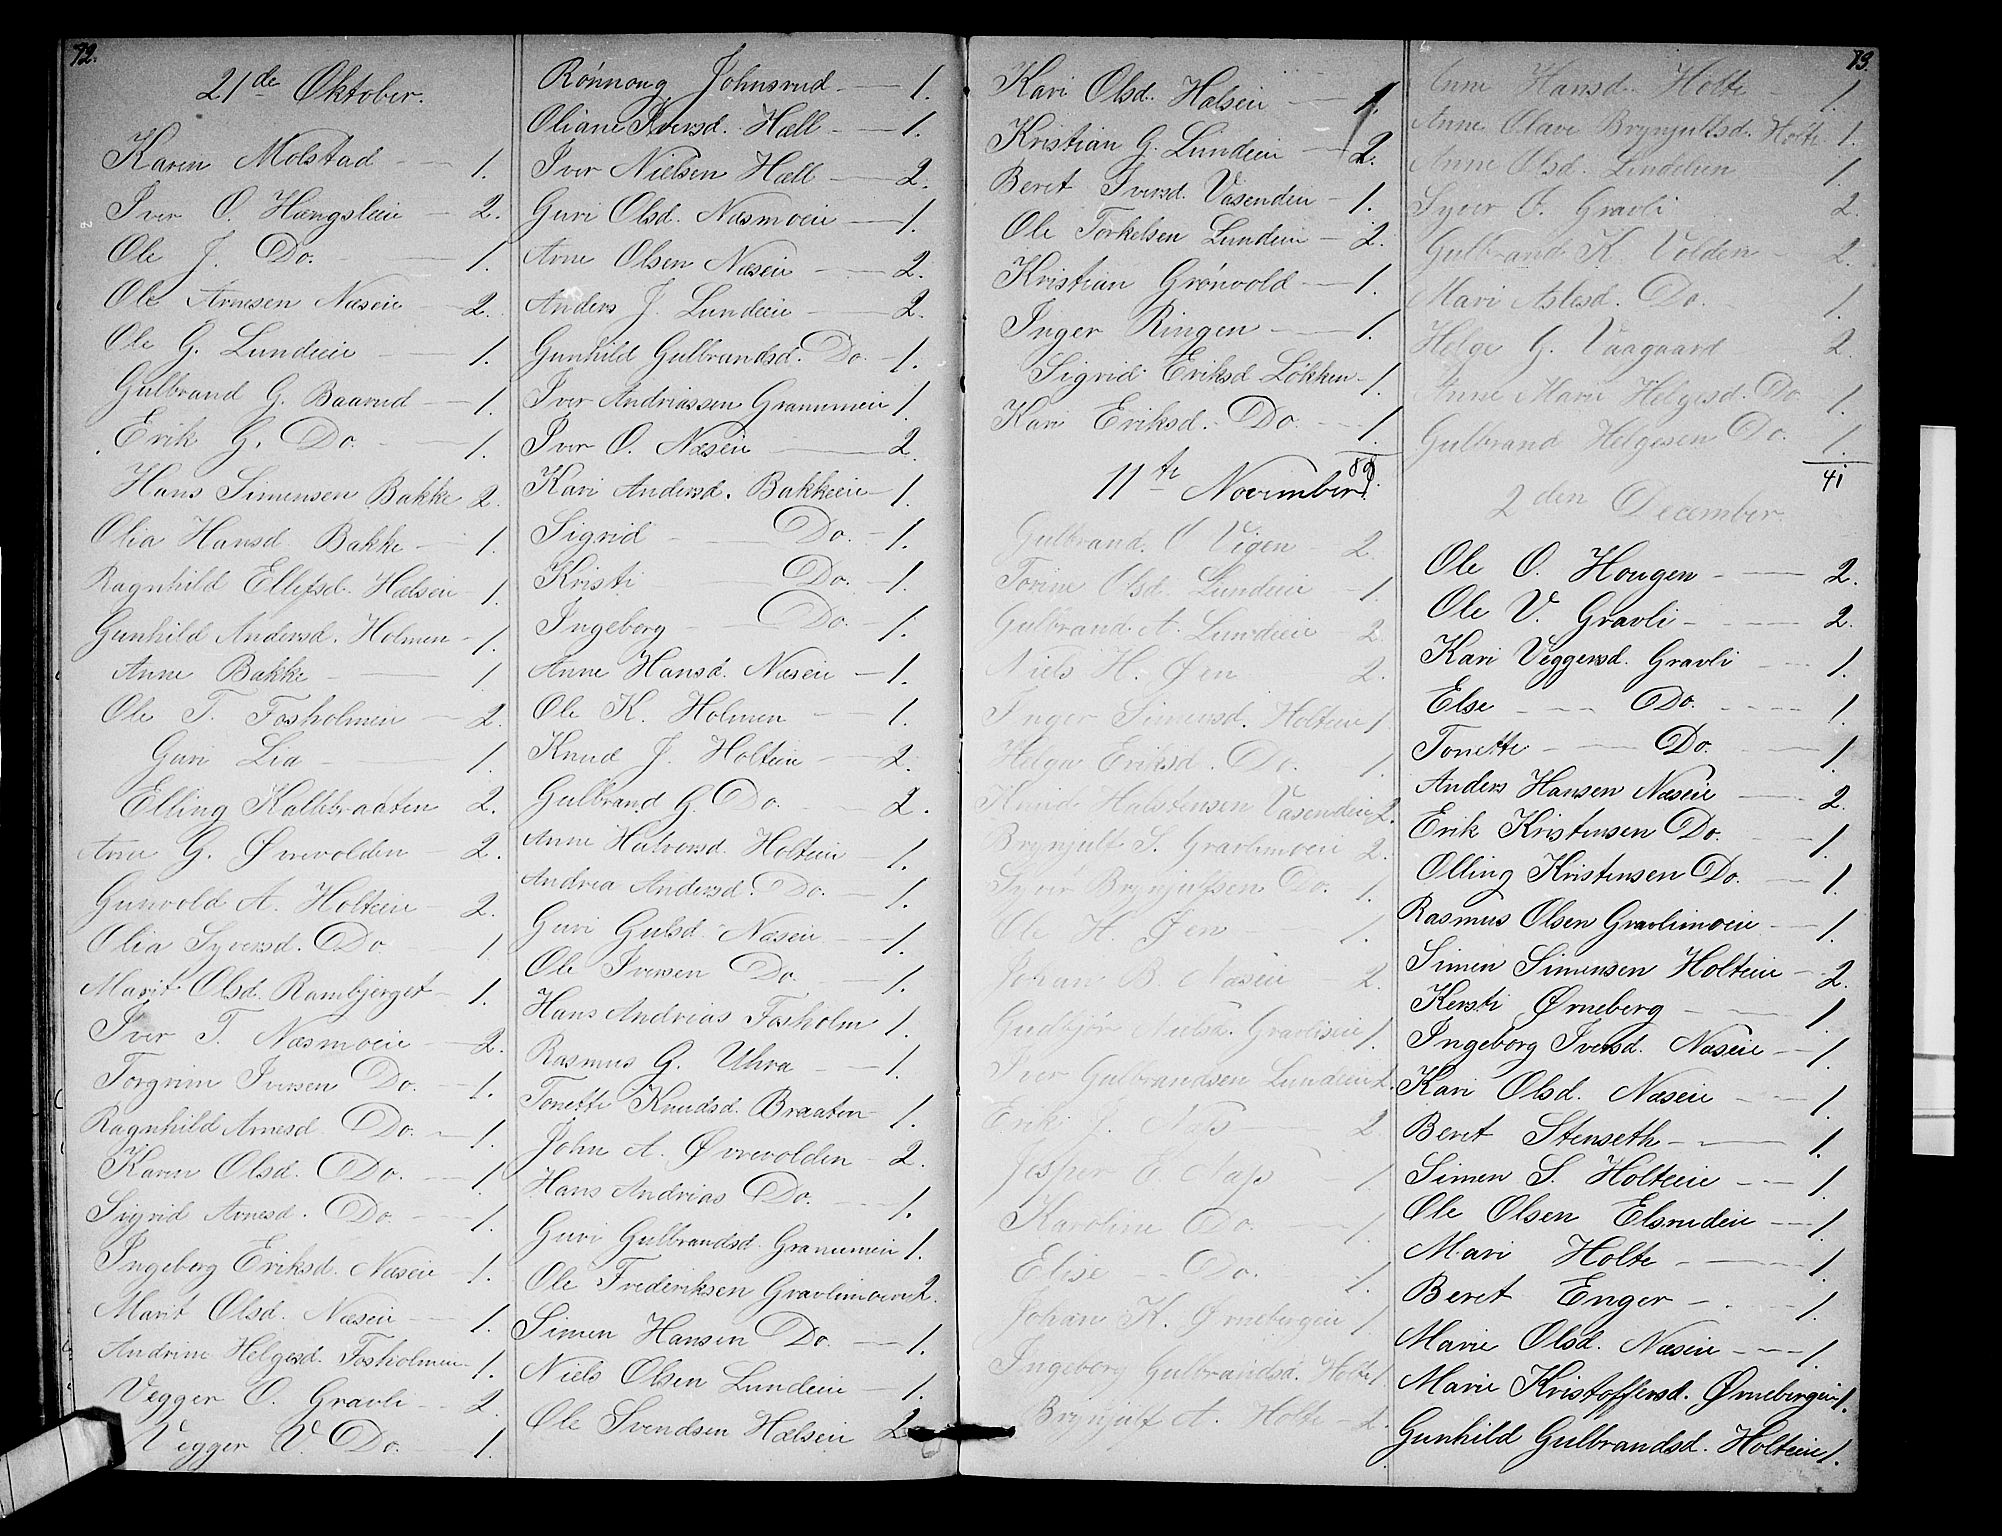 92.
21de Oktober.
Karen Molstad — 1.
Iver O. Hængsleie — 2.
Ole J. Do. — 1.
Ole Arnesen Næseie — 2.
Ole G. Lundeeie — 1.
Gulbrand G. Baarud — 1.
Erik G. Do. — 1.
Hans Simensen Bakke 2.
Olia Hansd Bakke — 1.
Ragnhild Ellefsd. Hælseie — 1.
Gunhild Andersd. Holmen — 1.
Anne Bakke — 1
Ole T. Fosholmen — 2.
Guri Lia — 1.
Elling Kallebraaten 2.
Arne G. Øvrevolden — 2.
Gunvold A. Holteeie — 2.
Olia Syversd. Do 1.
Marit Olsd. Rambjerget — 1.
Iver T. Næsmoeie — 2.
Torgrim Iversen Do. — 1.
Ragnhild Arnesd. Do. — 1.
Karen Olsd. Do. — 1.
Sigrid Arnesd. Do. — 1.
Ingeborg Eriksd. Næseie — 1.
Marit Olsd. Næseie — 1.
Andrine Helgesd. Fosholmen — 1.
Vegger O. Gravli — 2.
Vegger V. Do. — 1.
Rönnoug Johnsrud — 1.
Oliane Iversd. Hæll — 1.
Iver Nielsen Hæll — 2.
Guri Olsd. Næsmoeie — 1.
Arne Olsen Næseie — 2.
Anders J. Lundeeie — 2.
Gunhild Gulbrandsd. Do. — 1.
Iver Andriassen Granumeie 1.
Iver O. Næseie — 2.
Kari Andersd. Bakkeeie — 1.
Sigrid — Do. — 1.
Kristi — Do. — 1.
Ingeborg — Do. 1.
Anne Hansd. Næseie — 1.
Ole K. Holmen — 1.
Knud J. Holteeie — 2.
Gulbrand G. Do. 2.
Anne Halvorsd. Holteeie — 1.
Andrea Andersd. Do. — 1.
Guri Gulsd. Næseie — 1.
Ole Iversen Do. — 1.
Hans Andrias Fosholm 1.
Rasmus G. Uhra — 1.
Tonette Knudsd. Braaten — 1.
John A. Øvrevolden — 2.
Hans Andrias Do. — 1.
Guri Gulbrandsd. Granumeie 1.
Ole Frederiksen Gravlimoeie 2.
Simen Hansen Do. — 1.
Niels Olsen Lundeeie — 1.
Ole Svendsen Hælseie 2
93.
Kari Olsd. Halseie — 1.
Kristian G. Lundeeie — 2.
Beret Iversd. Vasendeie — 1.
Ole Torkelsen Lundeeie — 2.
Kristian Grönvold — 1.
Inger Ringen — 1.
Sigrid Eriksd Lökken — 1.
Kari Eriksd. Do. — 1.
11te November.
Gulbrand O Vigen — 2.
Torine Olsd. Lundeeie — 1.
Gulbrand A. Lundeeie — 2.
Niels H. Øen 2.
Inger Simensd. Holteeie 1.
Helga Eriksd. Do. — 1.
Knud Halstensen Vasendeie 2.
Brynjulf S. Gravlimoeie 2.
Syver Brynjulfsen Do. — 1.
Ole H. Øen 1.
Johan B. Næseie — 2.
Gudbjör Nielsd. Gravliseie 1.
Iver Gulbrandsen Lundeeie 2.
Erik J. Næs — 2.
Jesper E. Næss 1.
Karoline Do. 1.
Elise — Do. 1.
Johan K. Ørnebergeie 1
Ingeborg Gulbrandsd. Holte 1
Brynjulf A. Holte — 2.
Anne Hansd. Holte — 1.
Anne Olava Brynjulfsd. Holte 1.
Anne Olsd. Lindelien 1.
Syver O. Gravli 2.
Gulbrand K. Volden — 2.
Mari Aslesd. Do. 1.
Helge G. Vaagaard — 2.
Anne Marie Helgesd. Do — 1.
Gulbrand Helgesen Do. 1.
41
2den December.
Ole O. Hougen — 2.
Ole V. Gravli — 2.
Kari Veggersd. Gravli — 1.
Else — Do. — 1.
Tonette — Do. — 1.
Anders Hansen Næseie — 2.
Erik Kristensen Do. — 1.
Olling Kristensen Do. — 1.
Rasmus Olsen Gravlimoeie — 1.
Simen Simensen Holteeie — 2.
Kersti Ørneberg — 1.
Ingeborg Iversd. Næseie — 1.
Kari Olsd. Næseie — 1.
Beret Stenseth — 1.
Simen S. Holteeie — 1.
Ole Olsen Elsrudeie — 1.
Mari Holte — 1.
Beret Enger — 1.
Marie Olsd. Næseie — 1.
Marie Kristoffersd. Ørnebergeie 1.
Gunhild Gulbrandsd. Holteeie 1.